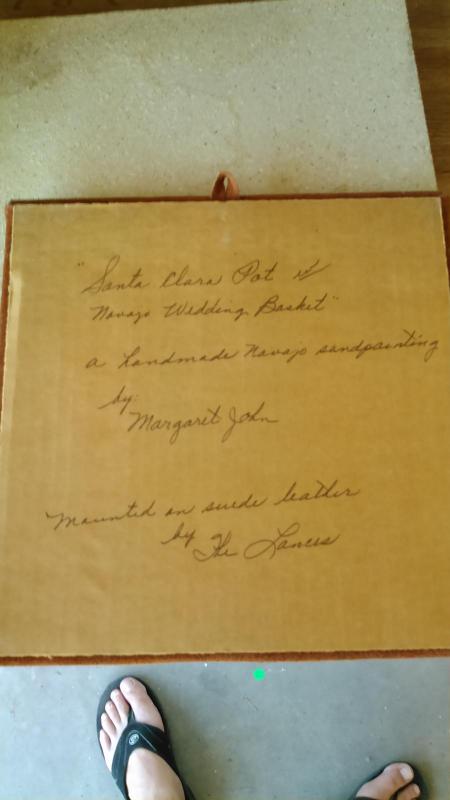 "Santa Clara Pot w/
Navajo Wedding Basket"
a handmade Navajo sandpainting
by:
Margaret John
Mounted on suede leather
by The Lancis